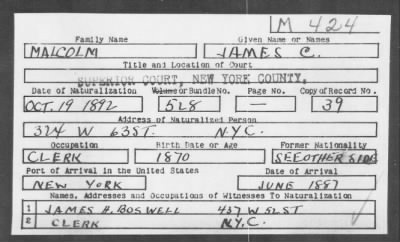 M 424
Family Name Given Name or Names
MALCOLM JAMES C.
Title and Location of Court
SUPERIOR COURT, NEW YORK COUNTY.
Date of Naturalization Volume or Bundle No. Page No. Copy of Record No.
OCT. 19 1892 528 — 39
Address of Naturalized Person
324 W 63 ST. N.Y.C.
Occupation Birth Date or Age Former Nationality
CLERK 1870 SEE OTHER SIDE
Port of Arrival in the United States Date of Arrival
NEW YORK JUNE 1887
Names, Addresses and Occupations of Witnesses To Naturalization
1 JAMES H. BOSWELL 437 W 51 ST
2 CLERK N.Y.C.